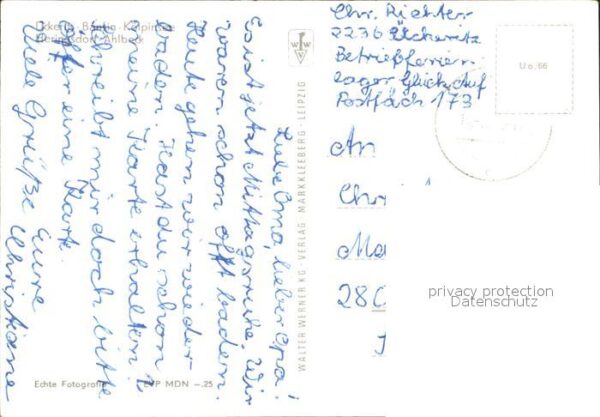 Ückeritz · Bansin · Kölpinsee
Heringsdorf · Ahlbeck
Liebe Oma, lieber Opa!
Es ist jetzt Mittagsruhe. Wir
waren schon oft baden.
Heute gehen wir wieder
baden. Hast du schon
meine Karte erhalten?
Schreibt mir doch bitte
öfter eine Karte.
Viele Grüße Eure
Christiane
Echte Fotografie EVP MDN -.25
WALTER WERNER KG · VERLAG · MARKKLEEBERG - LEIPZIG
Chr. Richter
2236 Ückeritz
Betriebsferien-
lager Glückauf
Postfach 173
Uo. 66
An
Chr
Ma
280
privacy protection
Datenschutz